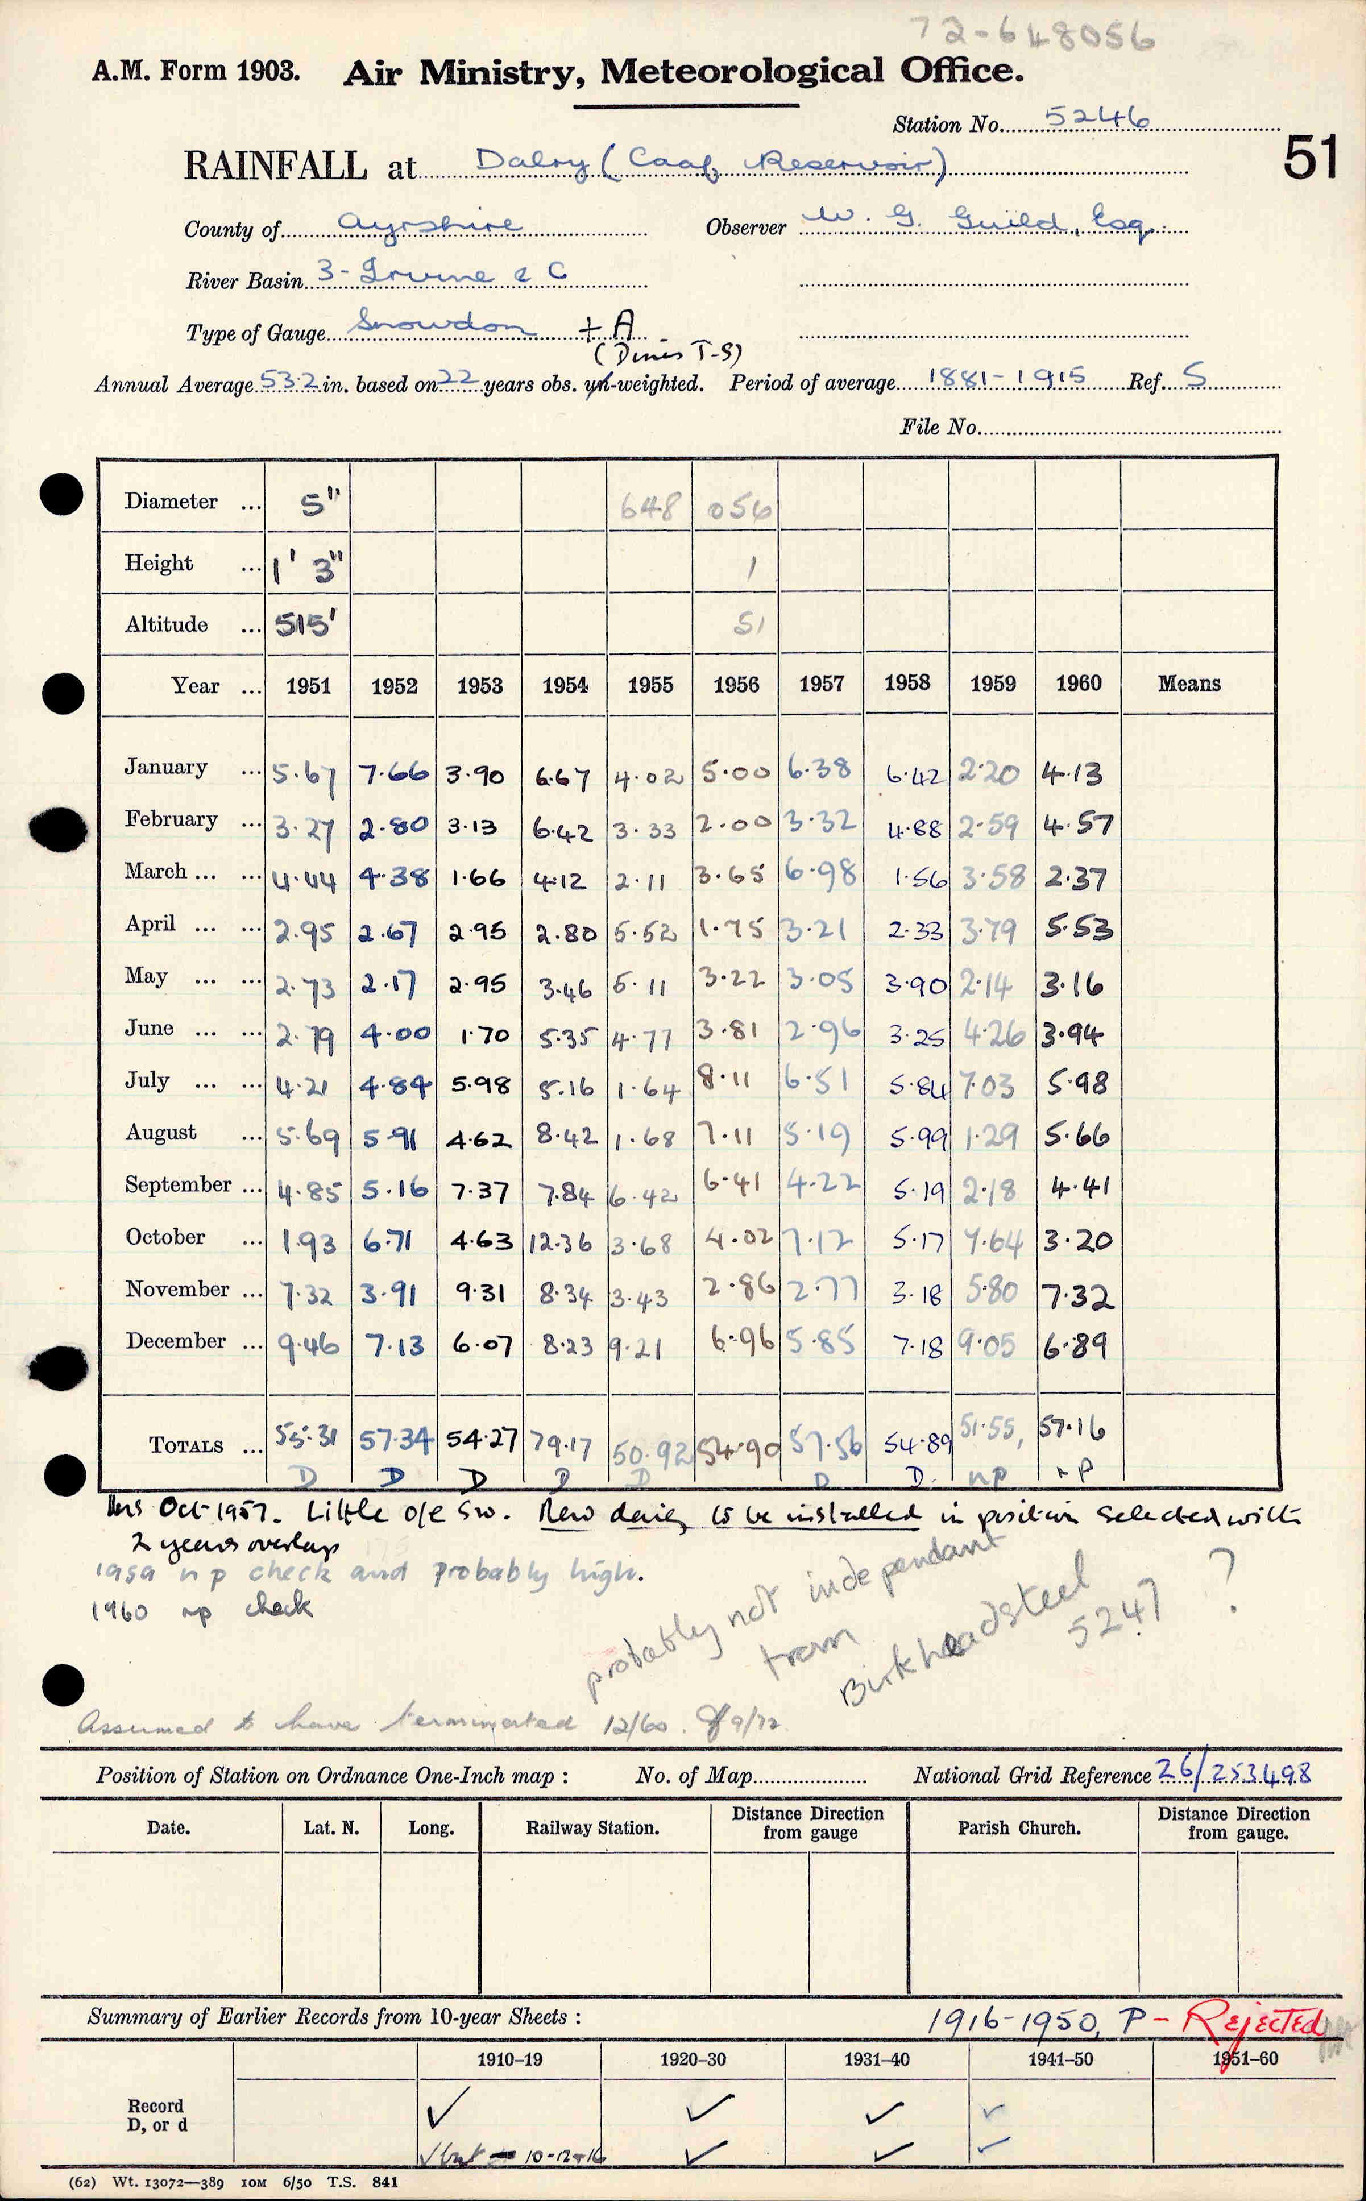 72-648056
A.M. Form 1903. Air Ministry, Meteorological Office.
Station No. 5246
51
RAINFALL at Dalry (Caaf Reservoir)
County of Ayrshire Observer W. G. Guild, Esq.
River Basin 3-Irvine & C
Type of Gauge Snowdon + A
(Dines T-S)
Annual Average 53.2 in. based on 22 years obs. un-weighted. Period of average 1881-1915 Ref. S
File No.
Diameter ... 5" 648 056
Height ... 1' 3" 1
Altitude ... 515' 51
Year ... 1951 1952 1953 1954 1955 1956 1957 1958 1959 1960 Means
January ... 5.67 7.66 3.90 6.67 4.02 5.00 6.38 6.42 2.20 4.13
February ... 3.27 2.80 3.13 6.42 3.33 2.00 3.32 4.88 2.59 4.57
March ... ... 4.44 4.38 1.66 4.12 2.11 3.65 6.98 1.56 3.58 2.37
April ... ... 2.95 2.67 2.95 2.80 5.52 1.75 3.21 2.33 3.79 5.53
May ... ... 2.73 2.17 2.95 3.46 5.11 3.22 3.05 3.90 2.14 3.16
June ... ... 2.79 4.00 1.70 5.35 4.77 3.81 2.96 3.25 4.26 3.94
July ... ... 4.21 4.84 5.98 5.16 1.64 8.11 6.51 5.84 7.03 5.98
August ... 5.69 5.91 4.62 8.42 1.68 7.11 5.19 5.99 1.29 5.66
September ... 4.85 5.16 7.37 7.84 6.42 6.41 4.22 5.19 2.18 4.41
October ... 1.93 6.71 4.63 12.36 3.68 4.02 7.12 5.17 7.64 3.20
November ... 7.32 3.91 9.31 8.34 3.43 2.86 2.77 3.18 5.80 7.32
December ... 9.46 7.13 6.07 8.23 9.21 6.96 5.85 7.18 9.05 6.89
TOTALS ... 55.31 57.34 54.27 79.17 50.92 54.90 57.56 54.89 51.55, 57.16
D D D D D D D. np np
Ins Oct 1957. Little o/e SW. New daily to be installed in position selected with
2 years overlap
1959 n p check and probably high.
1960 np check
probably not independant
from
Birkheadsteel
5247 ?
Assumed to have terminated 12/60. 9/72
Position of Station on Ordnance One-Inch map : No. of Map National Grid Reference 26/253498
Date. Lat. N. Long. Railway Station. Distance Direction from gauge Parish Church. Distance Direction from gauge.
Summary of Earlier Records from 10-year Sheets : 1916-1950, P - Rejected
1910-19 1920-30 1931-40 1941-50 1951-60
Record
D, or d ✓ ✓ ✓ ✓
✓ but - 10-12-16 ✓ ✓ ✓
(62) Wt. 13072—389 10M 6/50 T.S. 841